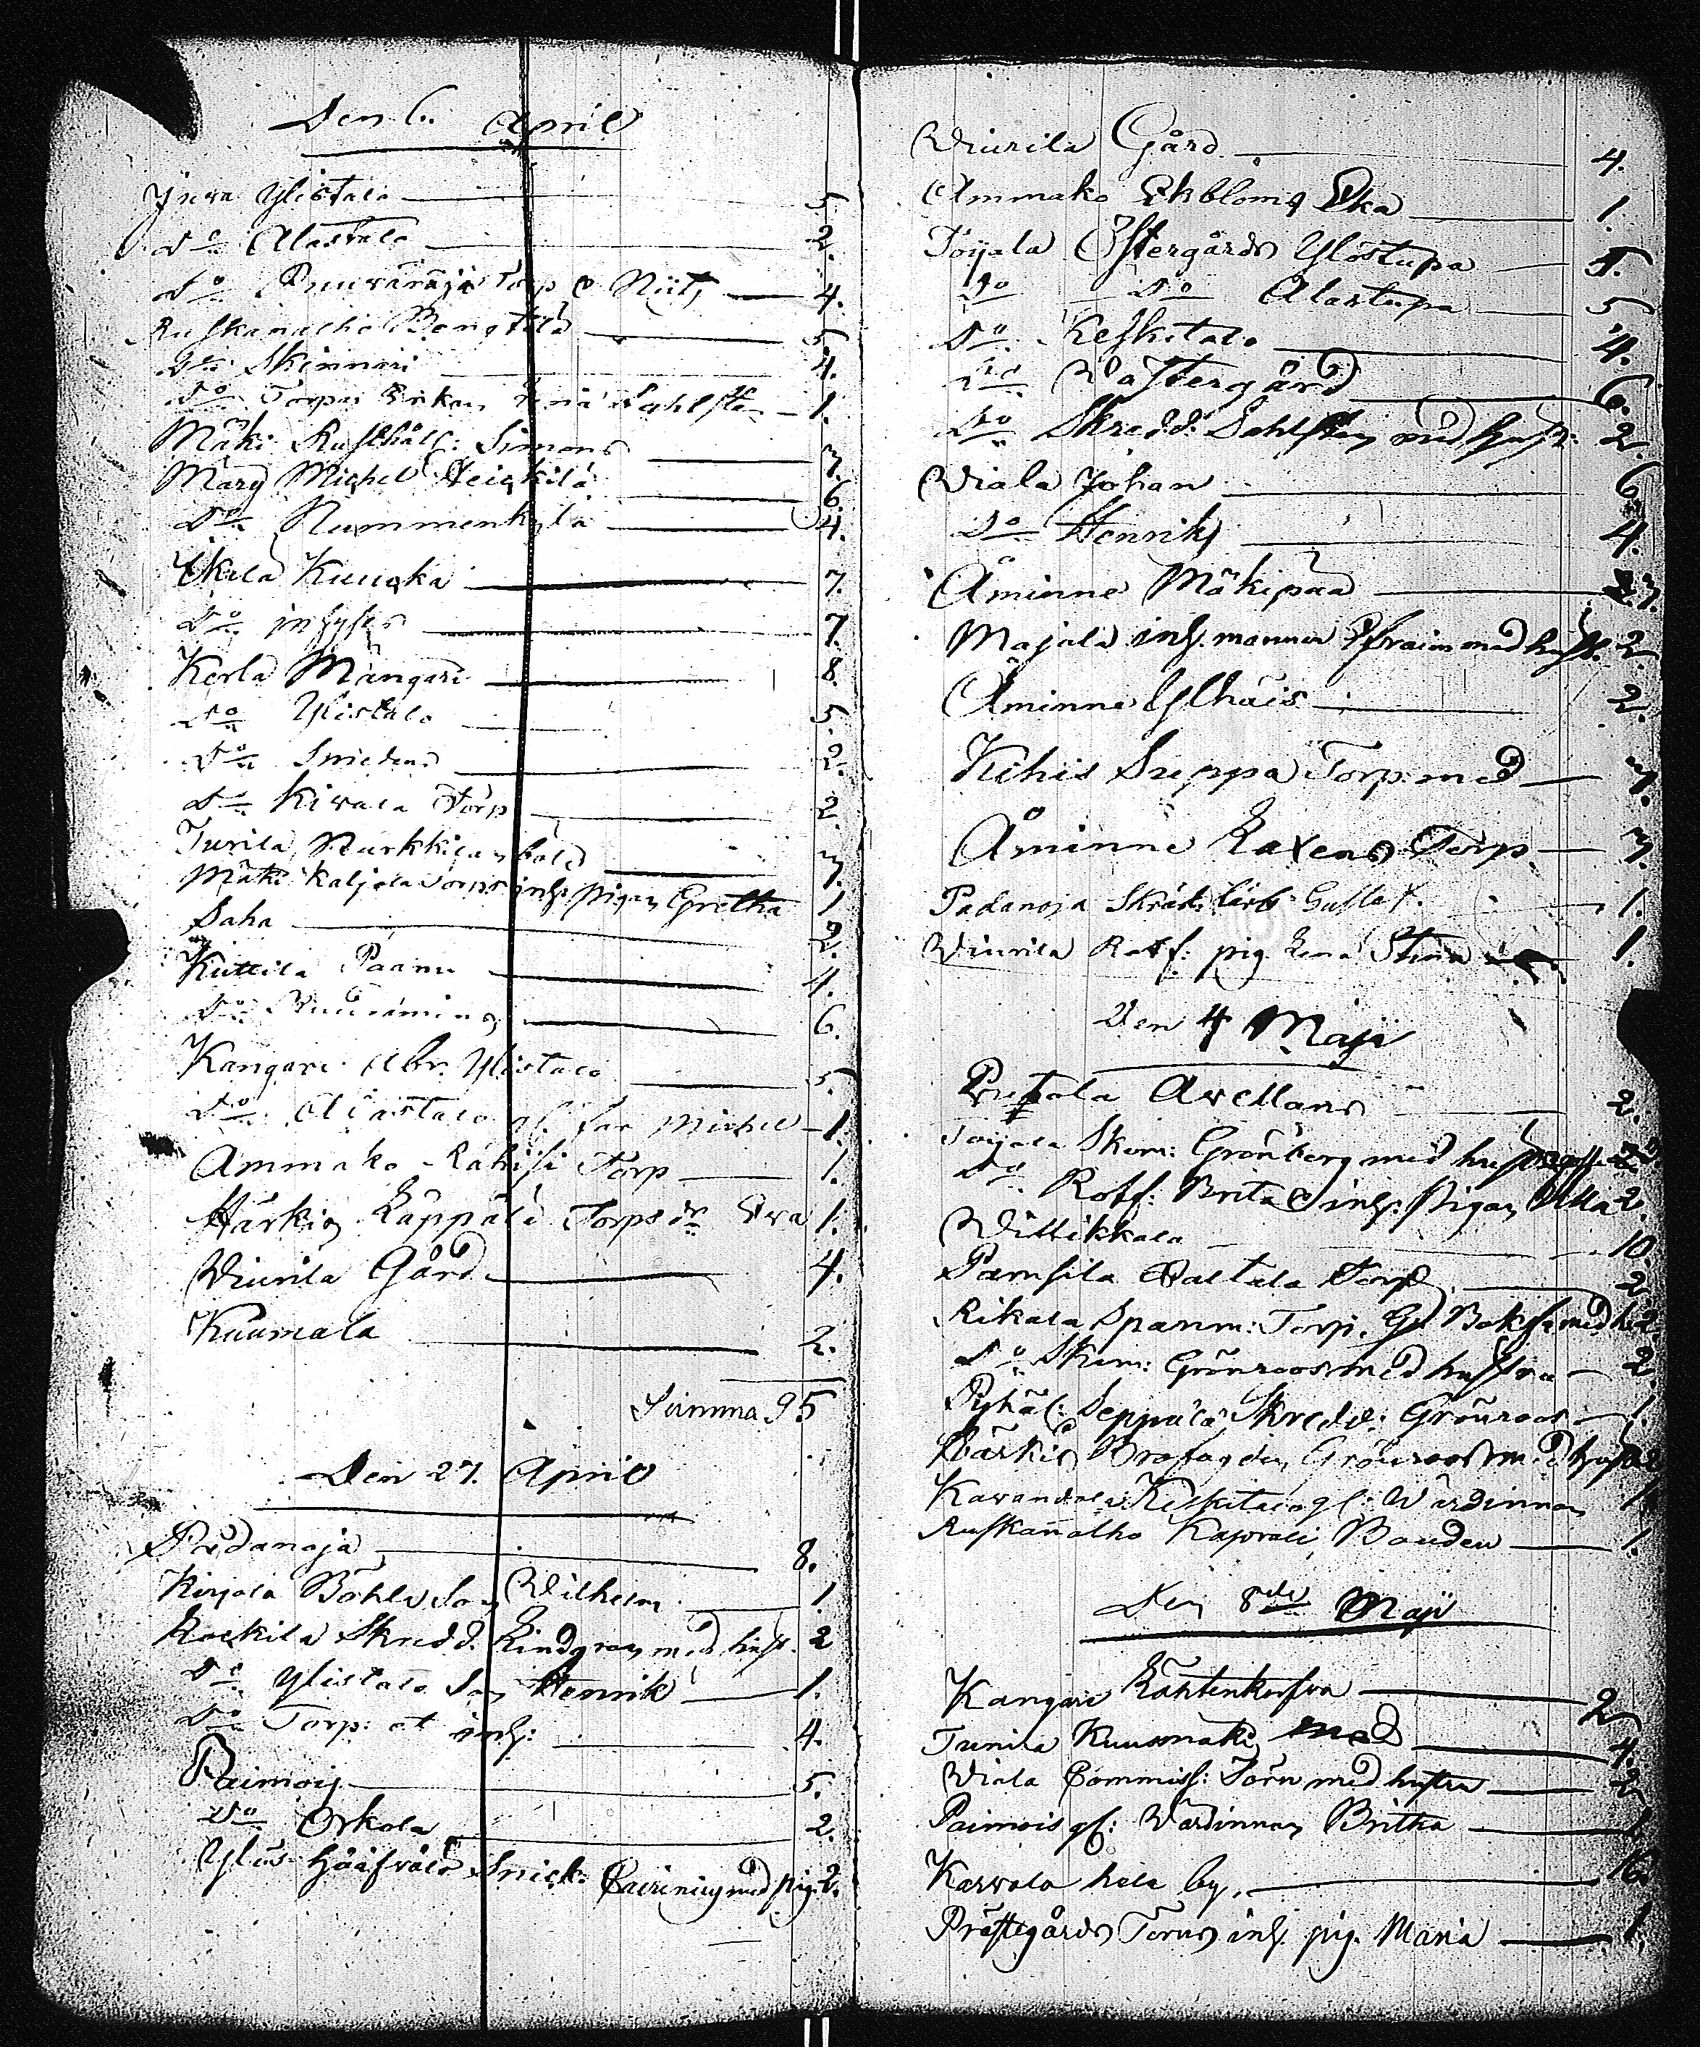 Den 6. April
Juva Ylistalo 5
Do Alastalo 2.
Do Torp o Niit, 4.
Ruskanalho Bengtilä 5.
Do Skinnari 4.
Do Torpar Enkan Lena Sahlsten 1.
Mäki Rusthåll: Simons 7.
Märy Michel Heickilä 6.
Do Nummenkylä 4.
Ekela Kuuska 7.
Do inhyses 7.
Kerla Mängäri 8.
Do Ylistalo 5.
Do Smedens 2.
Do Kivala Torp 2.
Turila Nurkkila 7.
Mäki Kaljala Torps inh: pigan Gretha 1
Saha 2.
Kuttila Paanu 4.
Do 6.
Kangari Abr. Ylistalo 5.
Do Alastalo gl. far Michel 1.
Ammako Rahisi Torp 1.
Härkis Läppälä Torps dr. Eva 1.
Viurila Gård 4.
Kuumala 2.
Summa 95
Den 27. April
Padanoja 8.
Kirjola Böhle Son Wilhelm 1
Kaekila Skredd. Lindgren med hust. 2
Do Ylistalo Son Henrik 1.
Do Torp: et inh: 4.
Paimois 5.
Do Orkola 2.
Snick: med pig. 2.
Viurila Gård 4.
Ammako Ekbloms Eka 1.
Toijala Östergårds Ylöstupa 5.
Do Do Alastupa 5
Do Keskitalo 4.
Do Västergård 6.
Do Skredd: Sahlsten med hustr: 2.
Viala Johan 6
Do Henriks 4.
Åminne Mäkipää 7.
Majala inh. mannen Efraim med hust. 2.
Åminne Ylhäis 2.
Kihis Seppä Torp: med 7.
Åminne Laxens Torp 7.
Padanoja Skräd: lärl: Gustaf. 1.
Viurila Rotf: pig. Lena Stina 1.
Den 4 Maji
Pertala Avellans 2.
Toijala Skom: Grönberg med hustr 2.
Do Rotf: Brita o inh: pigan Ulla 2.
Villikkala 10.
Pamsila Valtala Torp 2
Rikala Spanm: Torp. Gl. med h. 2.
Do Skom: Grönroos med hustru 2.
Pyhäl: Seppälä Skredd: Grönroos 1.
Härkis Grönroos med hust 2
Karandola Keskitalo gl: Värdinnan 1.
Ruskanalho Kaprali Bonden 1.
Den 8de Maji
Kangari Lähtenkorfva 2
Tunila Kuusmäki med 4.
Viala Commiss: Törn med hustru 2
Paimois gl: Värdinnan Britha 1
Karvola hela by, 16.
Prästegårds Torps inh. pig. Maria 1.